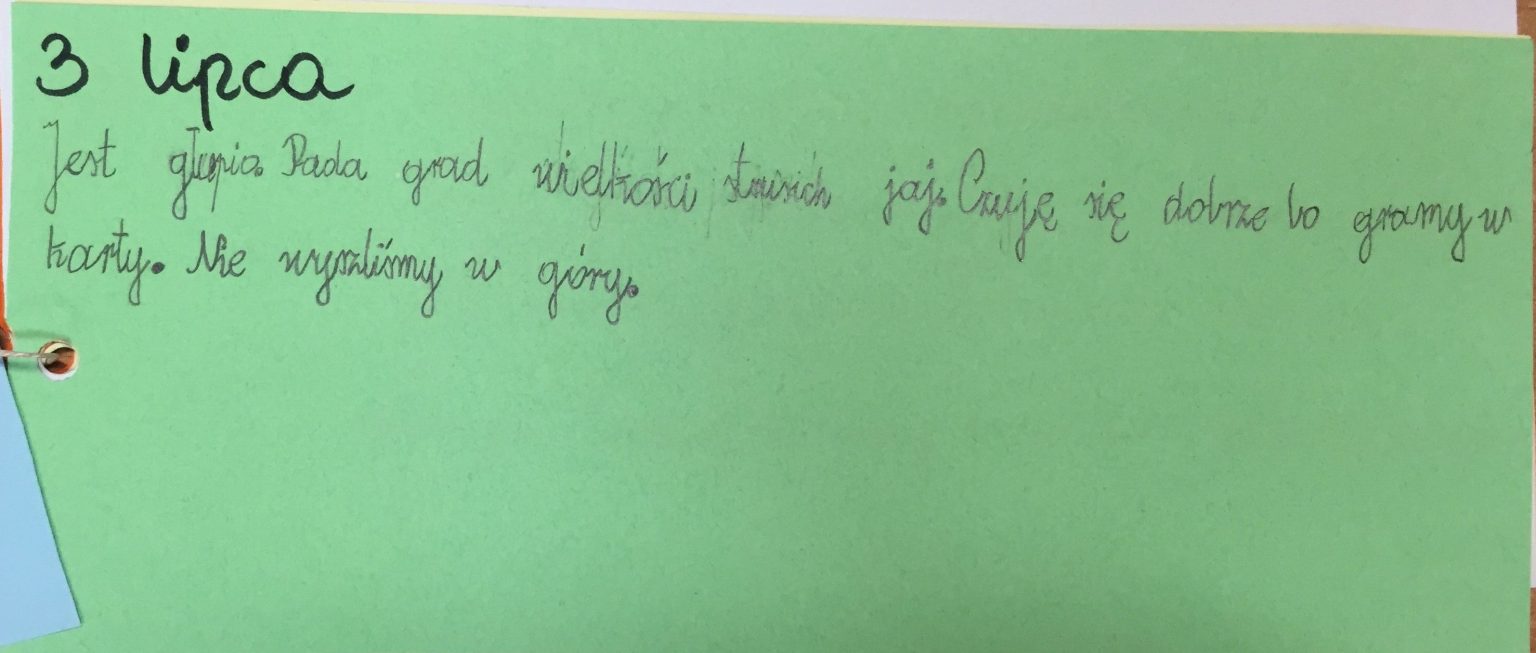 3 lipca
Jest głupio. Pada grad wielkości strusich jaj. Czuję się dobrze bo gramy w
karty. Nie wyszliśmy w góry.